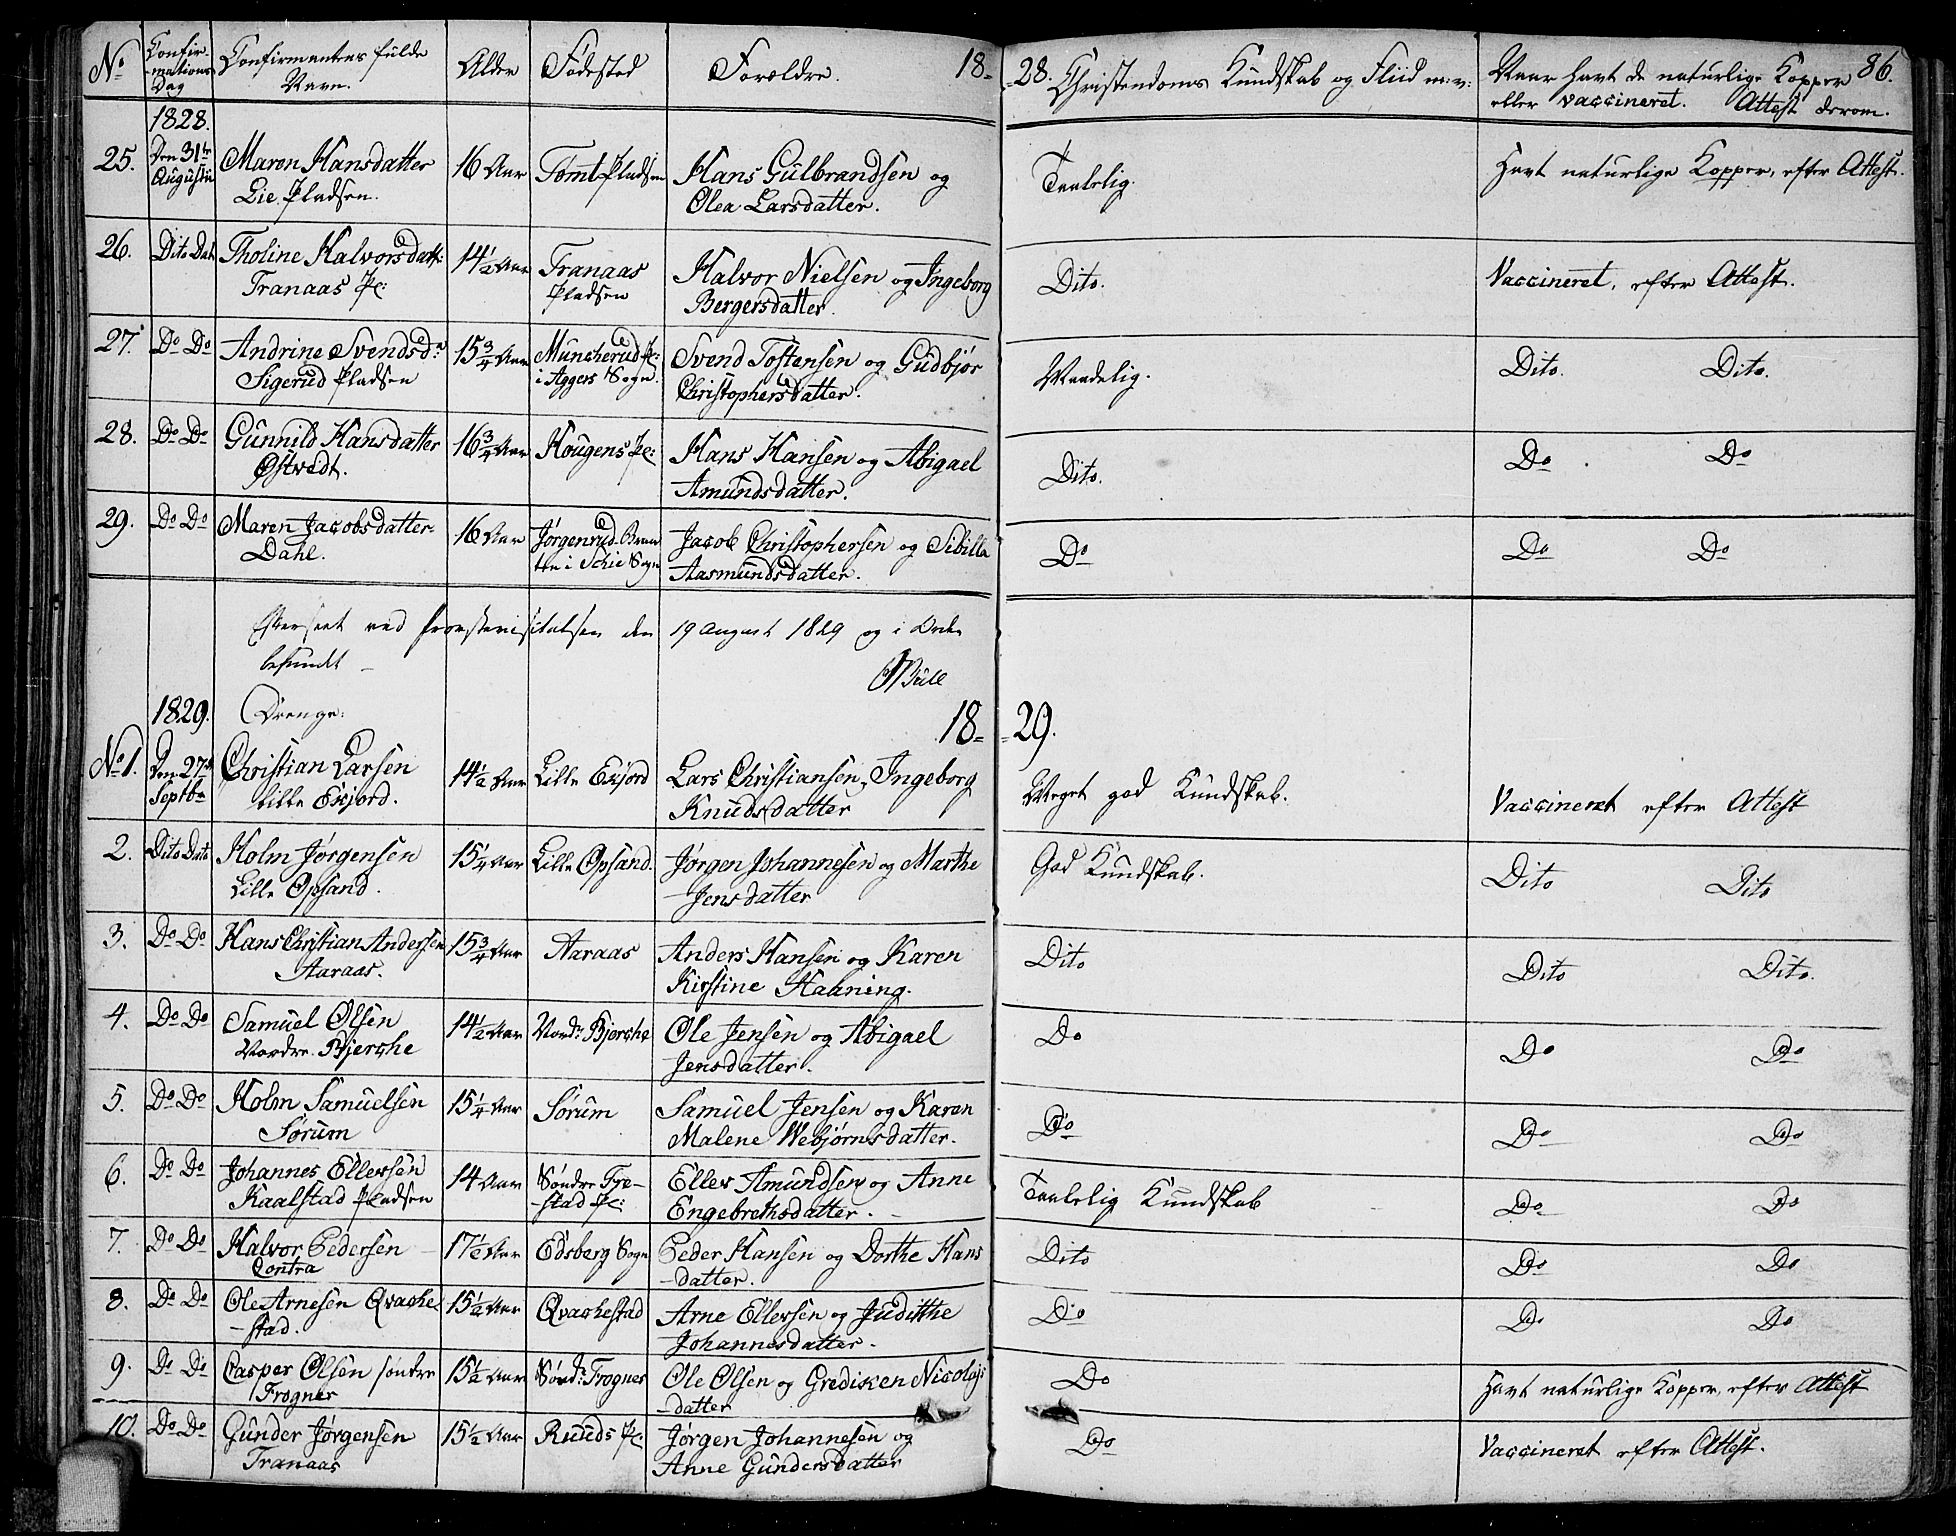 No Confir-mations Dag Confirmantens fulde Navn. Alder Fødested Forældre. 18-28. Christendoms Kundskab og Fliid m:v: Naar havt de naturlige Kopper eller vaccineret. Attest derom. 86.
1828.
25. Den 31te Augustii Maren Hansdatter 16 Aar Tømt Pladsen Hans Gulbrandsen og Taalelig. Havt naturlige Kopper, efter Attest.
Lie Pladsen. Olea Larsdatter.
26. Dito Dat Tholine Halvorsdatt: 14 1/2 Aar Tranaas Halvor Nielsen og Ingeborg Dito. Vaccineret, efter Attest.
Tranaas Pl: Pladsen Bergersdatter.
27. Do Do Andrine Svendsd: 15 3/4 Aar Müncherud Pl: Svend Tostensen og Gudbjør Maadelig. Dito. Dito.
Sigerud Pladsen i Aggers Sogn. Christophersdatter.
28. Do Do Gunnild Hansdatter 16 3/4 Aar Hougens Pl: Hans Hansen og Abigael Dito. Do Do
Østvedt. Amundsdatter.
29. Do Do Maren Jacobsdatter 16 Aar Jørgenrud Jacob Christophersen og Sibilla Do Do Do
Dahl. i Schie Sogn Aasmundsdatter.
Efterseet ved Provstevisitatsen den 19 August 1829 og i Orden
befundet
Bull
1829. Drenge: 18-29.
No 1. Den 27de Septbr Christian Larsen 14 1/2 Aar Lille Exjord Lars Christiansen, Ingeborg Meget god Kundskab. Vaccineret efter Attest
Lille Exjord. Knudsdatter
2. Dito Dato Holm Jørgensen 15 1/4 Aar Lille Opsand. Jørgen Johannesen og Marthe God Kundskab. Dito Dito
Lille Opsand. Jensdatter
3. Do Do Hans Christian Andersen 15 3/4 Aar Aaraas Anders Hansen og Karen Dito Dito Dito.
Aaraas. Kirstine Hanning.
4. Do Do Samuel Olsen 14 1/2 Aar Nord: Bjerche Ole Jensen og Abigael Do Do Do
Nordre Bjerche Jensdatter.
5. Do Do Holm Samuelsen 15 1/4 Aar Sørum Samuel Jensen og Karen Do Do Do
Sørum Malene Webjørnsdatter.
6. Do Do Johannes Ellevsen 14 Aar Søndre Fre- Ellev Amundsen og Anne Taalelig Kundskab Do Do
Kaalstad Pladsen -stad Pl: Engebrethsdatter.
7. Do Do Halvor Pedersen 17 1/2 Aar Edsberg Sogn Peder Hansen og Dorthe Hans Dito Do Do
Contra -datter.
8. Do Do Ole Arnesen Qvache- 15 1/2 Aar Qvachestad Arne Ellevsen og Judithe Do Do Do
-stad. Johannesdatter.
9. Do Do Casper Olsen søndre 15 1/2 Aar Sønd: Frogner Ole Olsen og Gredisken Nicolajs Do Havt naturlige Kopper, efter Attest
Frogner datter
10. Do Do Gunder Jørgensen 15 1/2 Aar Ruuds Pl: Jørgen Johannesen og Do Vaccineret efter Attest.
Tranaas Anne Gundersdatter